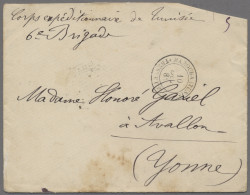 Corps expéditionnaire de Tunisie
6e Brigade
Madame Honoré Gariel
à Avallon
(Yonne)